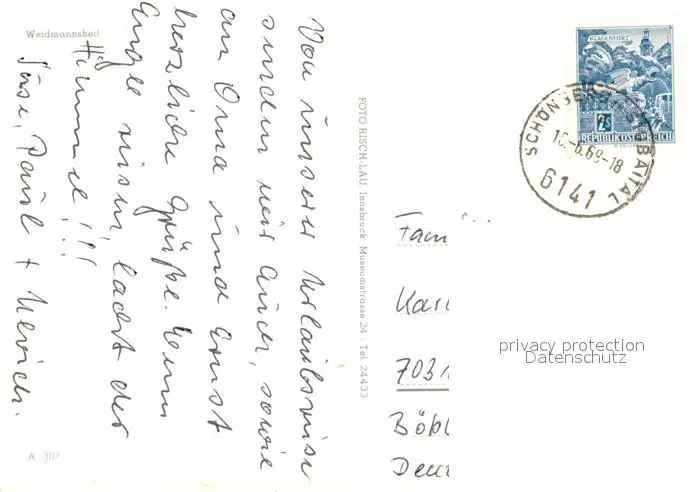 Weidmannsheil
Von unserer Urlaubsreise
senden wir Euch, sowie
an Oma und Ernst
herzliche Grüße. Wenn
Engel reisen, lacht der
Himmel!!!
Paul +
A 302
FOTO RISCH-LAU, Innsbruck Museumstrasse 24 - Tel 24433
KLAGENFURT
2S
REPUBLIK ÖSTERREICH
SCHÖNBERG STUBAITAL
6.69-18
6141
Fam
Karl
7031
Böbl
Deu
privacy protection
Datenschutz